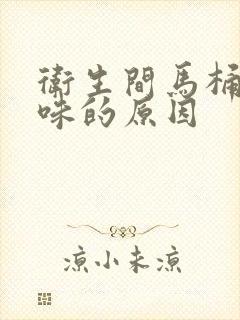 衛生間馬桶
味的原因
涼小未涼